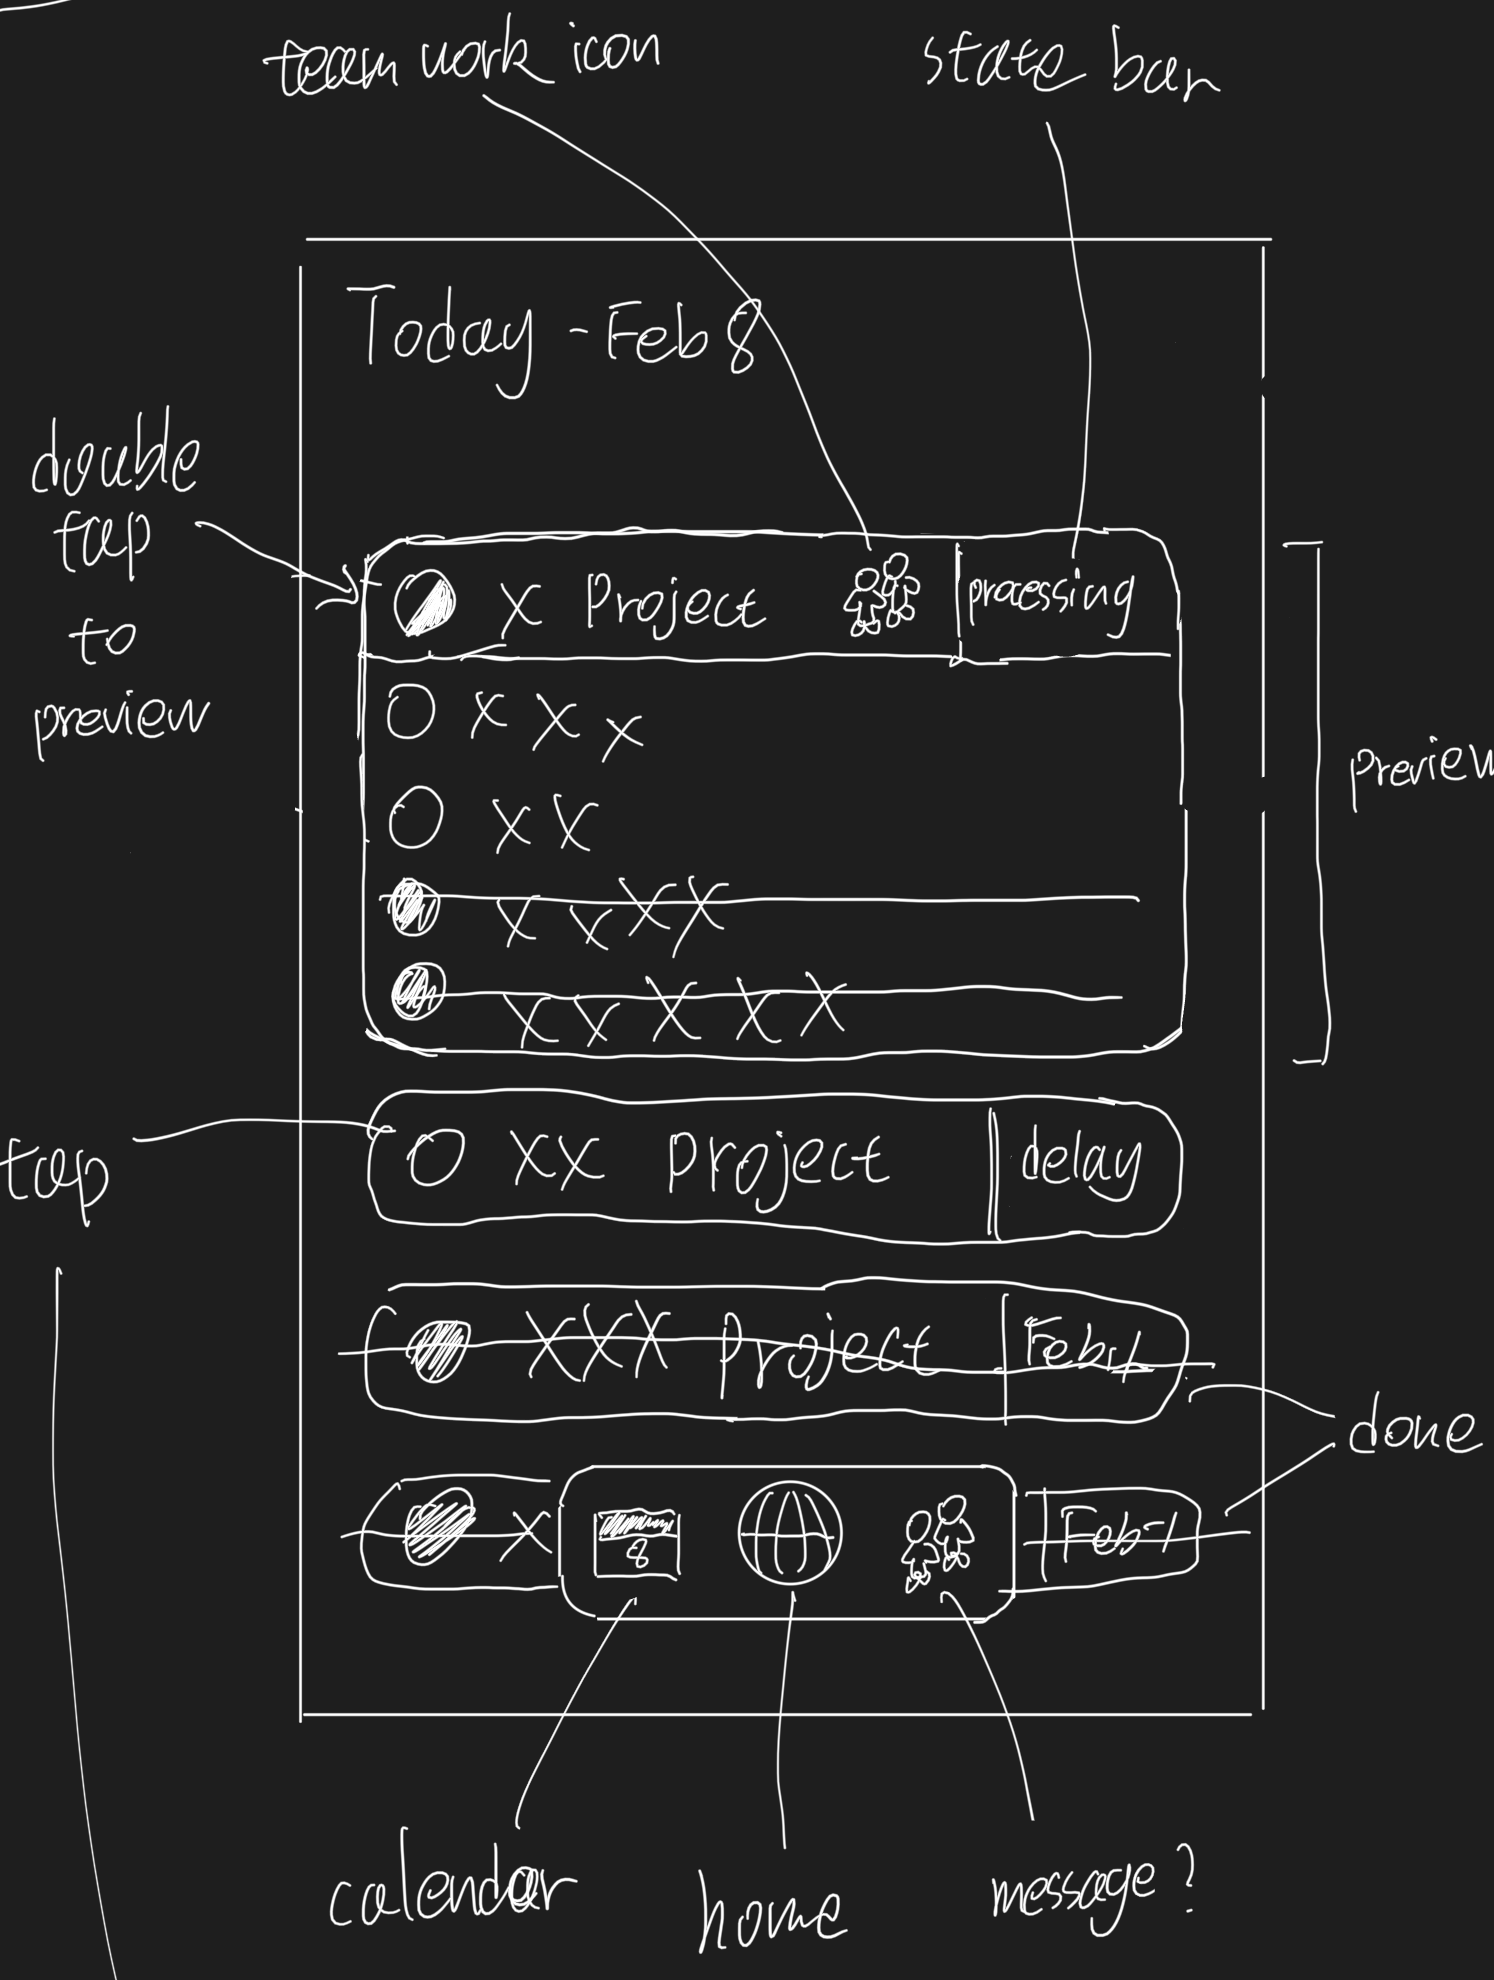 team work icon
state bar
Today - Feb 8
double
tap
to
preview
X Project
processing
X X X
X X
X X X X
X X X X X
preview
tap
XX project
delay
XXX project
done
X
8
calendar
home
message?